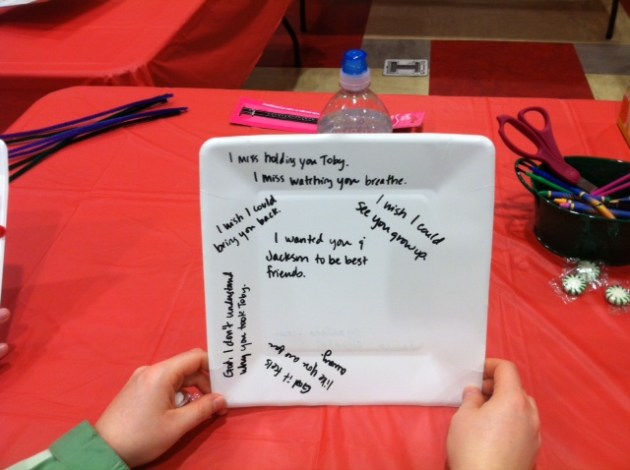 I miss holding you Toby.
I miss watching you breathe.
I wish I could
bring you back.
I wish I could
See you grow up.
I wanted you &
Jackson to be best
friends.
God, I don't understand
why you took Toby.
God it feels
like you are far
away